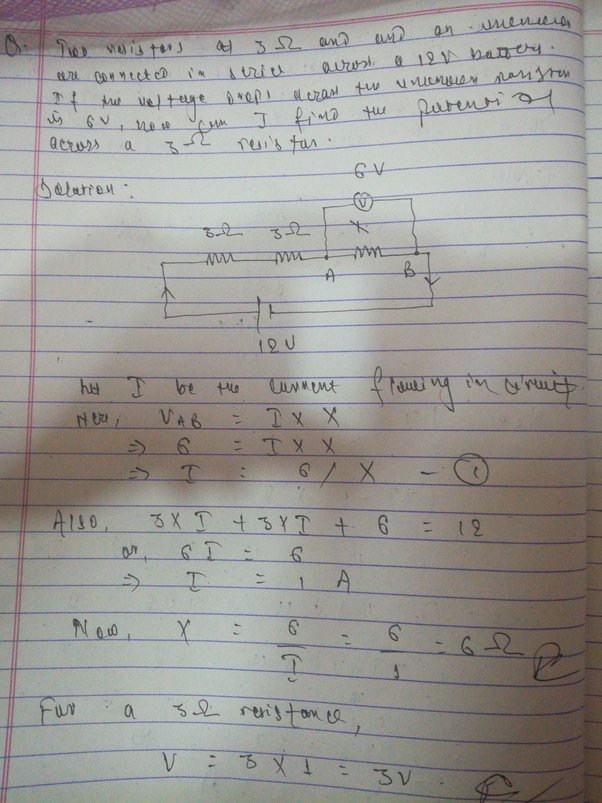 Q. Two resistors of 3Ω and and an unknown
are connected in series across a 12V battery.
If the voltage drops across the unknown resistor
is 6V, now can I find the potential
across a 3Ω resistor.
Solution:
6V
V
3Ω 3Ω X
A B
12V
Let I be the current flowing in circuit.
Now, VAB = I × X
⇒ 6 = I × X
⇒ I = 6 / X — ①
Also, 3×I + 3×I + 6 = 12
or, 6I = 6
⇒ I = 1 A
Now, X = 6/I = 6/1 = 6Ω
For a 3Ω resistance,
V = 3 × 1 = 3V.